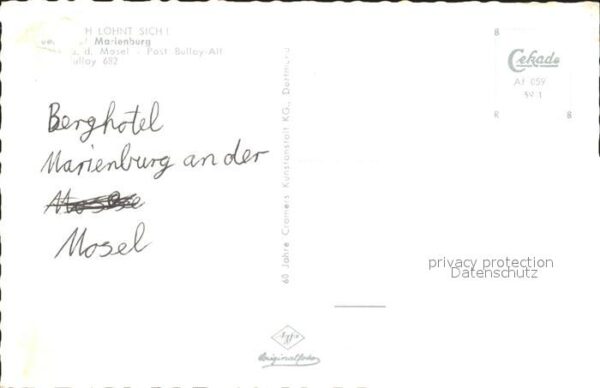 H LOHNT SICH!
Marienburg
a. d. Mosel - Post Bullay-Alf
Bullay 682
8
Cekade
Af 059
59 1
8 8
Berghotel
Marienburg an der
Mosel
60 Jahre Cramers Kunstanstalt KG., Dortmund
privacy protection
Datenschutz
Agfa
Originalfoto